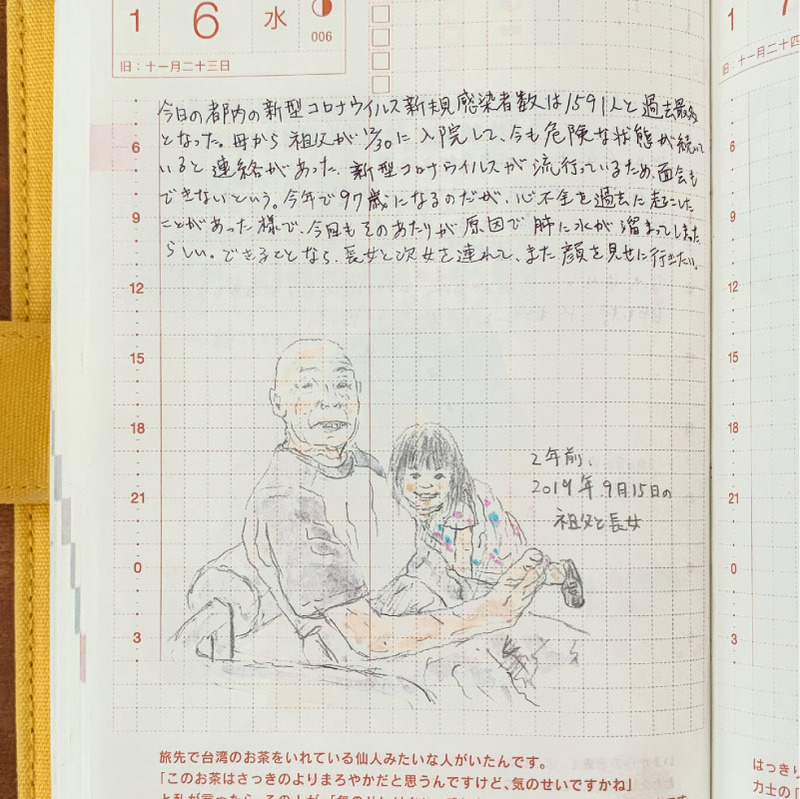 1 6 水
006
旧：十一月二十三日
今日の都内の新型コロナウイルス新規感染者数は1591人と過去最多
となった。母から祖父が12/30に入院して、今も危険な状態が続いて
いると連絡があった。新型コロナウイルスが流行っているため、面会も
できないという。今年で97歳になるのだが、心不全を過去に起こした
ことがあった様で、今回もそのあたりが原因で肺に水が溜まってしまった
らしい。できることなら、長女と次女を連れて、また顔を見せに行きたい。
6
9
12
15
18
21
0
3
2年前、
2019年9月15日の
祖父と長女
旅先で台湾のお茶をいれている仙人みたいな人がいたんです。
「このお茶はさっきのよりまろやかだと思うんですけど、気のせいですかね」
1 7
旧：十一月二十四
6
9
12
15
18
21
0
3
はっきり
力士の「